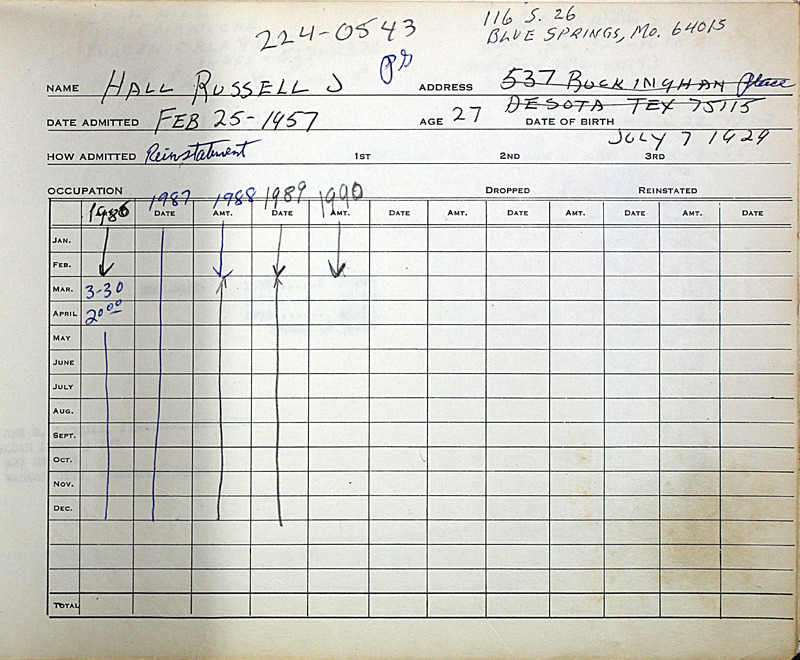 224-0543
116 S. 26
BLUE SPRINGS, MO. 64015
NAME HALL RUSSELL J ADDRESS 537 BUCKINGHAN Place
DESOTA TEX 75115
DATE ADMITTED FEB 25-1957 AGE 27 DATE OF BIRTH
JULY 7 1929
HOW ADMITTED Reinstatement 1ST 2ND 3RD
OCCUPATION DROPPED REINSTATED
1986 1987 1988 1989 1990
DATE AMT. DATE AMT. DATE AMT. DATE AMT. DATE AMT. DATE
JAN.
FEB.
MAR. 3-30
APRIL 20.00
MAY
JUNE
JULY
AUG.
SEPT.
OCT.
NOV.
DEC.
TOTAL